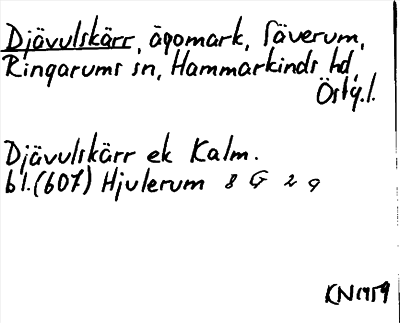 Djävulskärr, ägomark, Säverum,
Ringarums sn, Hammarkinds hd,
Östg.l.
Djävulskärr ek Kalm.
bl. (607) Hjulerum 8 G 2 g
KN 1959